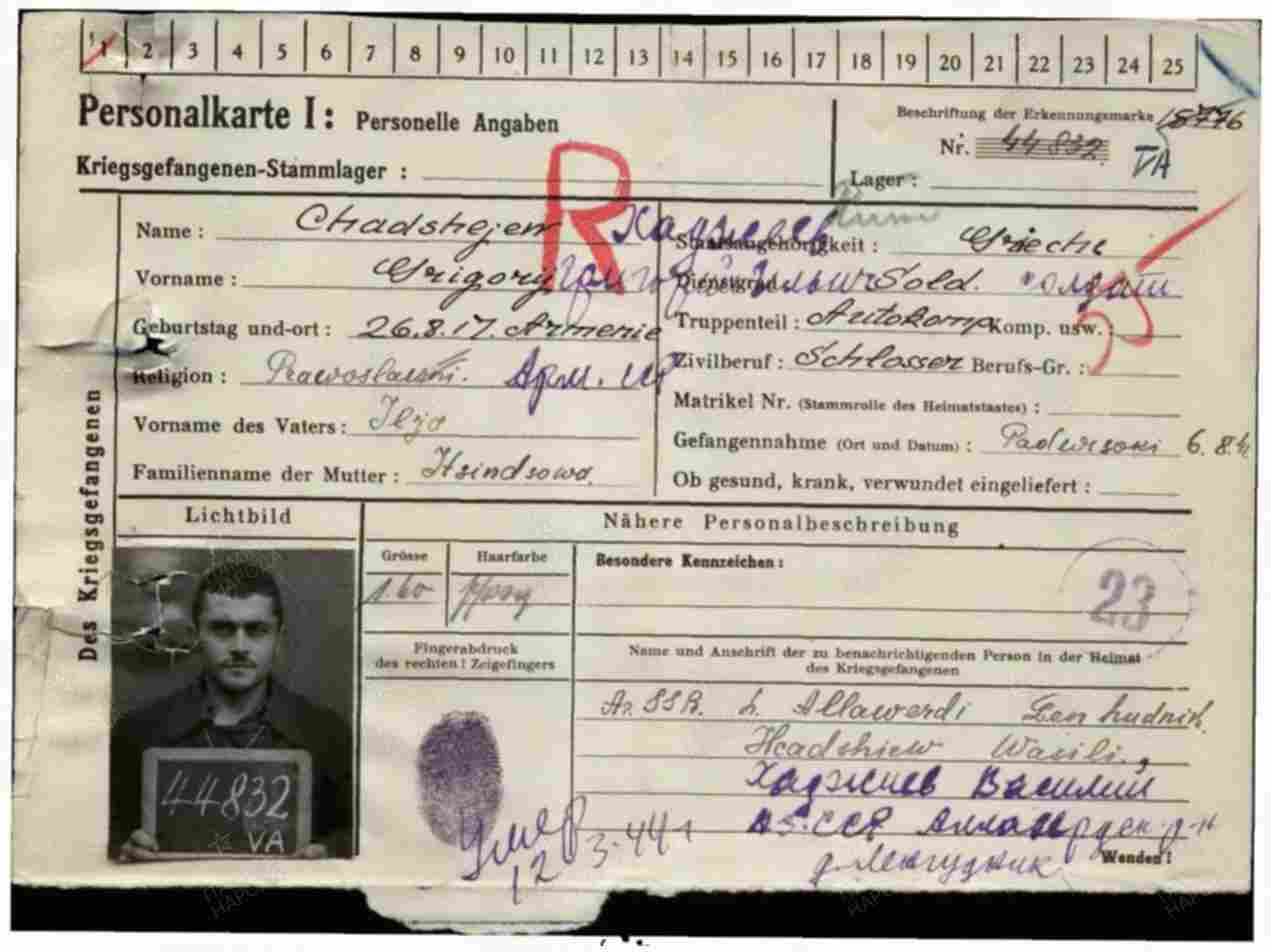 1 2 3 4 5 6 7 8 9 10 11 12 13 14 15 16 17 18 19 20 21 22 23 24 25
Personalkarte I: Personelle Angaben
Beschriftung der Erkennungsmarke 18776
Nr. 44832 VA
Kriegsgefangenen-Stammlager :
Lager :
R
Name : Chadshejew Хаджиев
Staatsangehörigkeit : Grieche
Vorname : Grigory Григорий Ильич
Dienstgrad Sold. солдат
Geburtstag und-ort : 26.8.17. Armenie
Truppenteil : Autokomp Komp. usw. :
Religion : Prawoslawski.
Zivilberuf : Schlosser Berufs-Gr. :
Matrikel Nr. (Stammrolle des Heimatstaates) :
Vorname des Vaters : Ilja
Gefangennahme (Ort und Datum) : 6.8.
Familienname der Mutter :
Ob gesund, krank, verwundet eingeliefert :
Des Kriegsgefangenen
Lichtbild
Nähere Personalbeschreibung
Grösse
Haarfarbe
Besondere Kennzeichen :
1.60
23
Fingerabdruck
des rechten ! Zeigefingers
Name und Anschrift der zu benachrichtigenden Person in der Heimat
des Kriegsgefangenen
Ar. SSR. Allawerdi
Headshiew Wasili.,
Хаджиев Василий
44832
VA
умер
12-3-44 г
д. Ленгудник
Wenden !